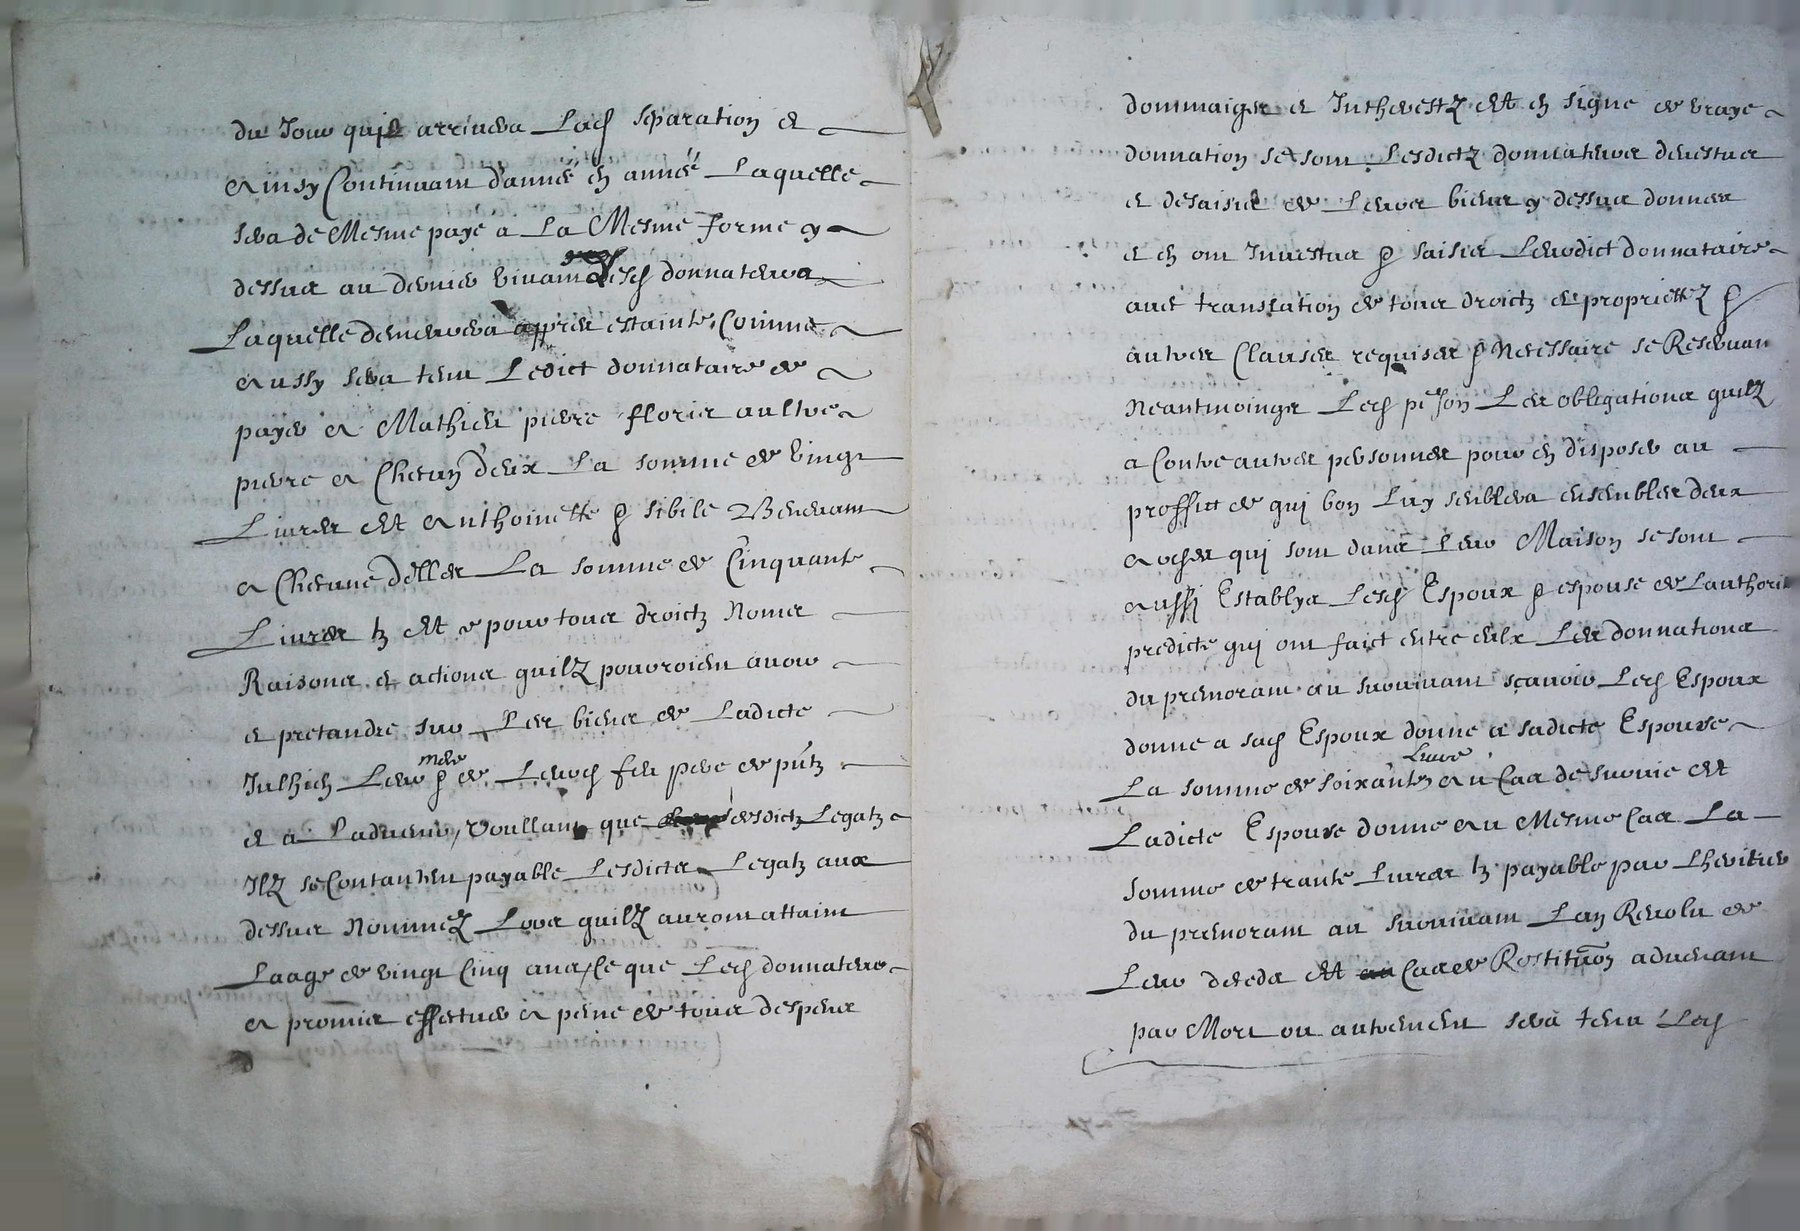 du Jour quil arrivera Lad separation et
ainsy Continuant d'année en année Laquelle
sera de Mesme paye a La Mesme forme y
dessus au dernier vivant desd donnateurs
Laquelle demeurera appres estainte, Comme
aussy sera tenu Ledict donnataire de
payer a Mathieu pierre floris aultre
pierre a Chacun d'eux La somme de vingt
Livres et Anthoinette & sibile
a Chacune d'elles La somme de Cinquante
Livres tz et pour tous droictz Noms
Raisons et actions quilz pourroient avoir
et pretandre sur Les biens de Ladicte
Leur mere & de Leurd feu pere de
et a Ladvenir, voullant que desdictz Legatz
Ilz se Contantent payable Lesdicts Legatz aux
dessus Nommez Lors quilz auront attaint
Laage de vingt Cinq ans, Ce que Lesd donnateurs
a promis effectuer a peine de tous despens
dommaiges et Intherestz et en signe de vraye
donnation se sont Lesdictz donnateurs devestus
et desaisis de Leurs biens y dessus donnes
et en ont Investus & saisis Leurdict donnataire
avec translation de tous droictz de proprietez &
autres Clauses requises & Necessaire se Reservant
Neantmoings Led Les obligations quilz
a Contre autres personnes pour en disposer au
proffict de qui bon Luy semblera ensembles deux
arches qui sont dans Leur Maison se sont
aussi Establys Lesd Espoux & espouse de Lauthorite
predicte qui ont faict entre eulx Les donnations
du premorant au survivant sçavoir Led Espoux
donne a sad Espoux donne a sadicte Espouse
La somme de soixante Livres au Cas de survie et
Ladicte Espouse donne au Mesme Cas La
somme de trante Livres tz payable par Lheritier
du premorant au survivant Lan Revolu de
Leur deceds et Cas de Restitution advenant
par Mort ou autrement sera tenu Led